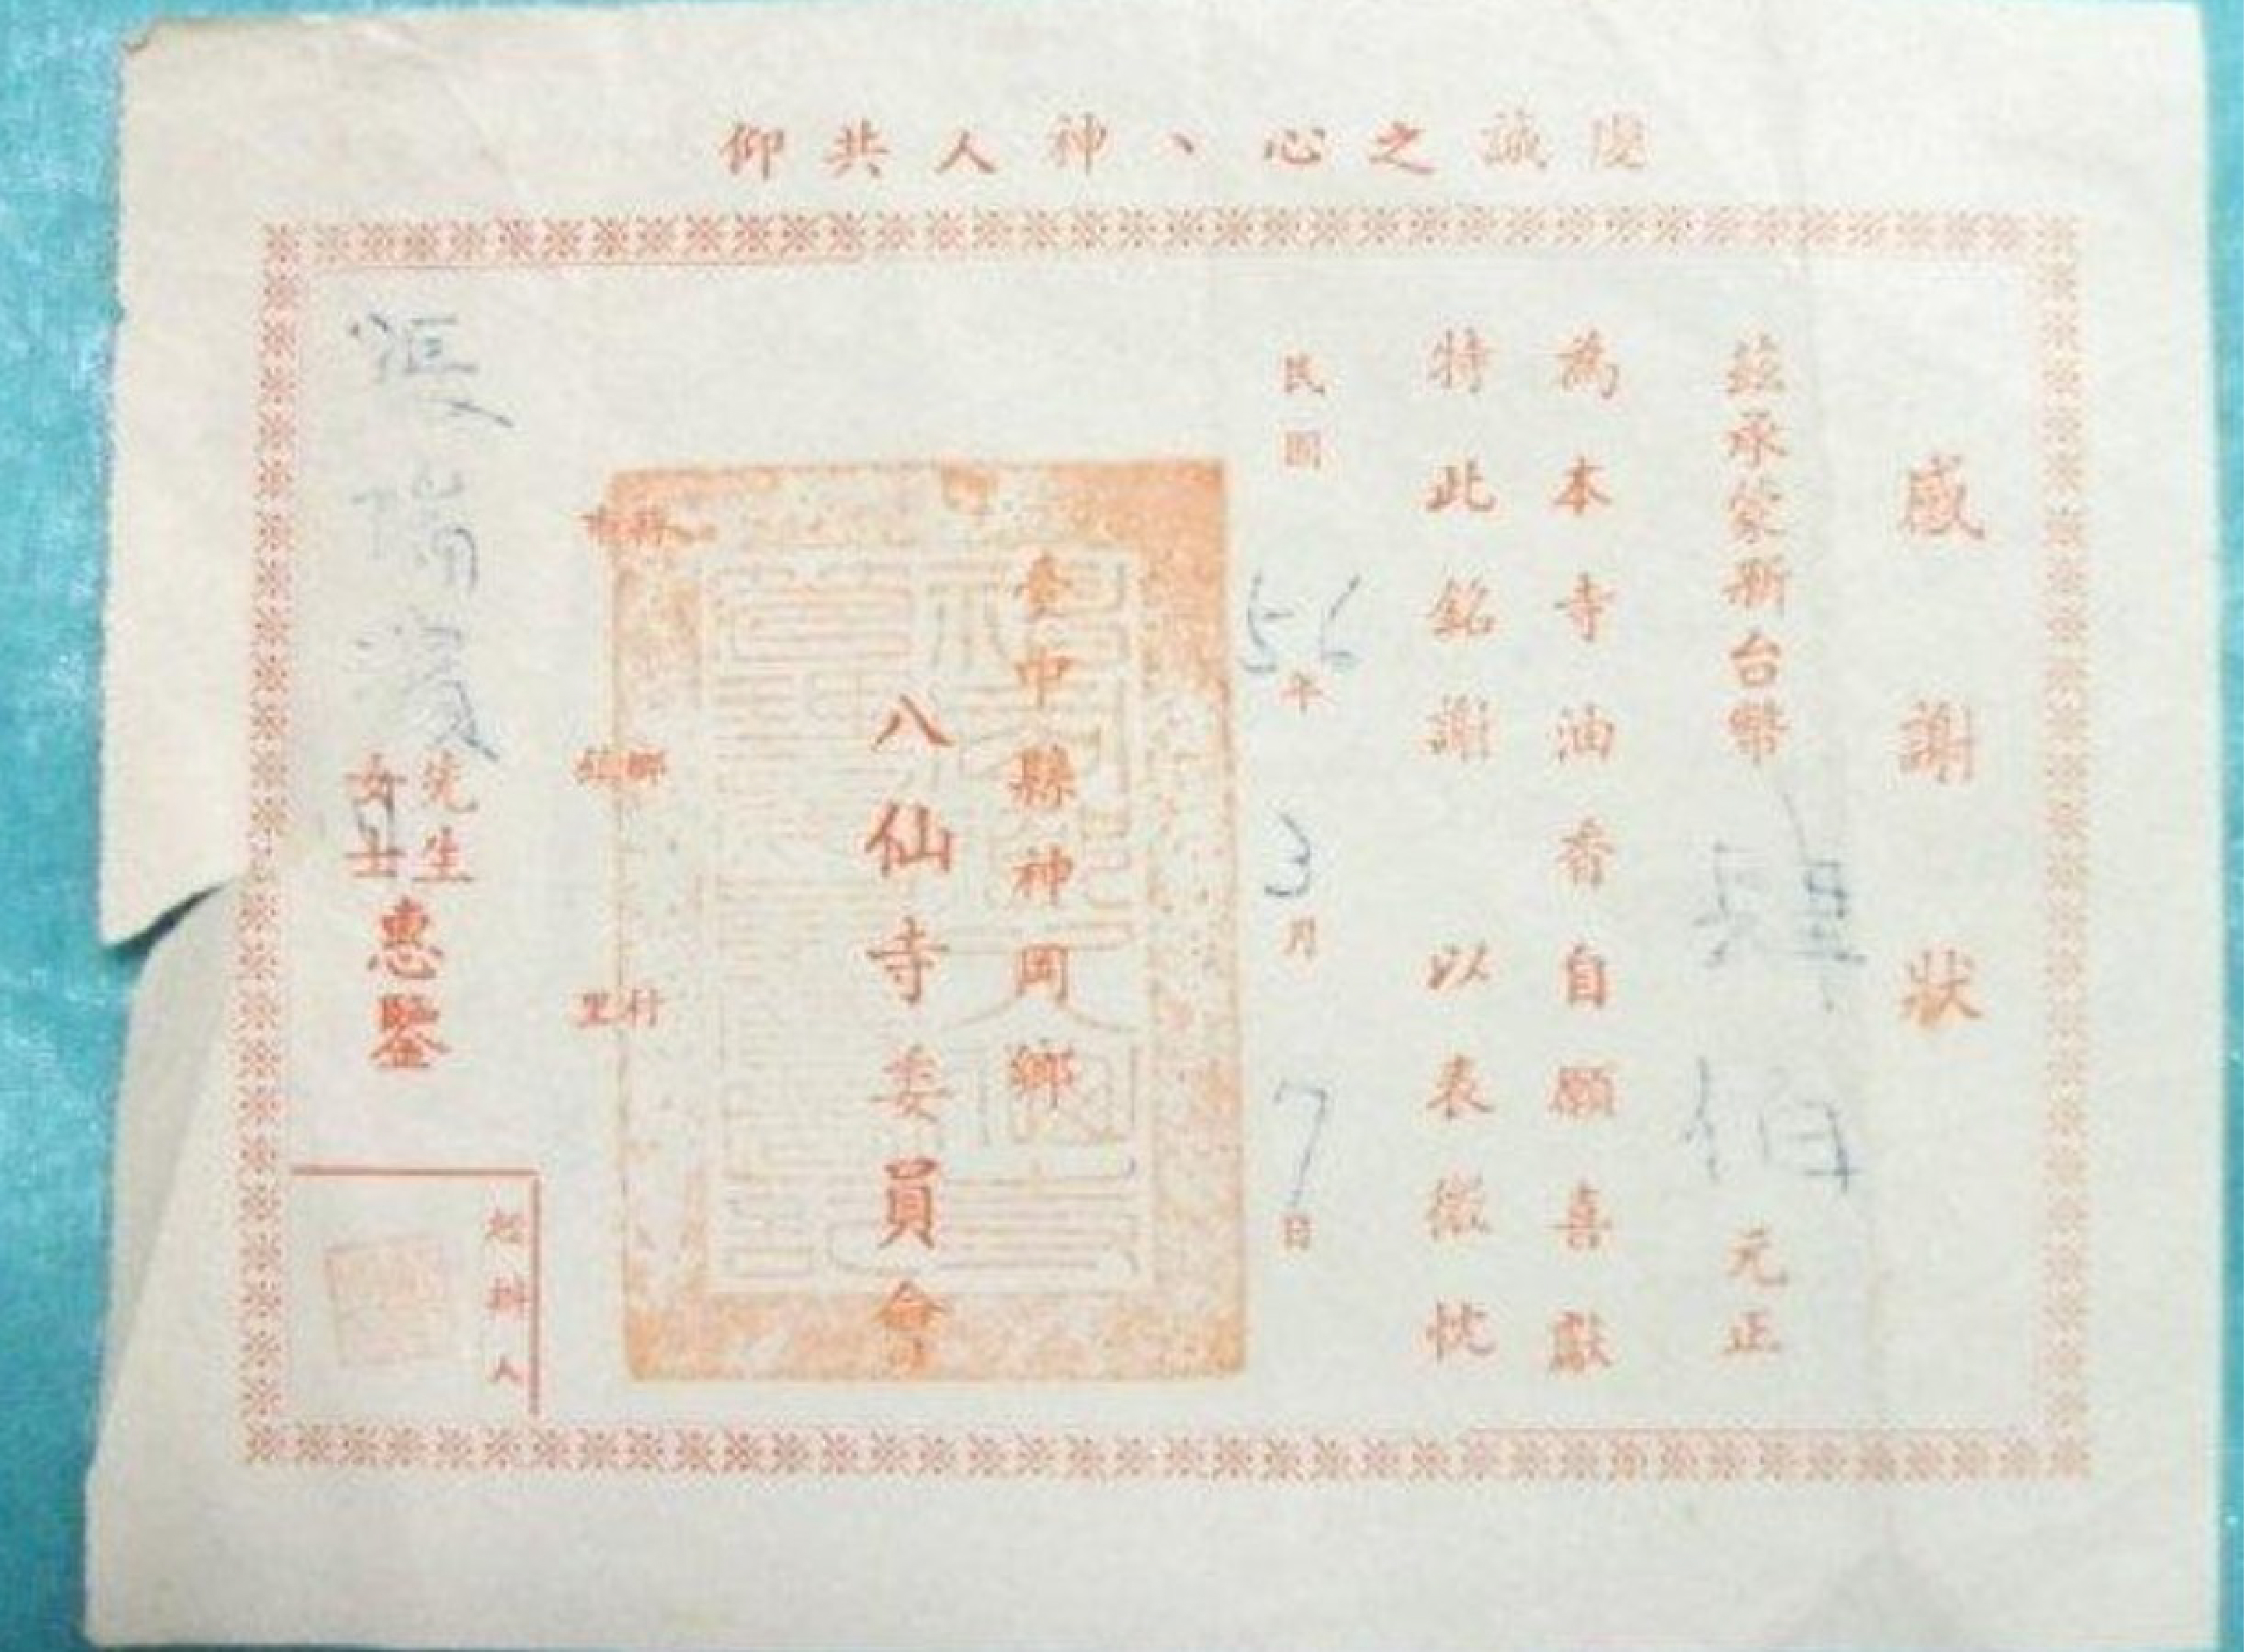 虔誠之心、神人共仰
感謝狀
茲承蒙新台幣肆佰元正
為本寺油香自願喜獻
特此銘謝 以表微忱
民國56年3月7日
臺中縣神岡鄉
八仙寺委員會
縣市 鄉鎮 村里
先生女士惠鑒
經辦人